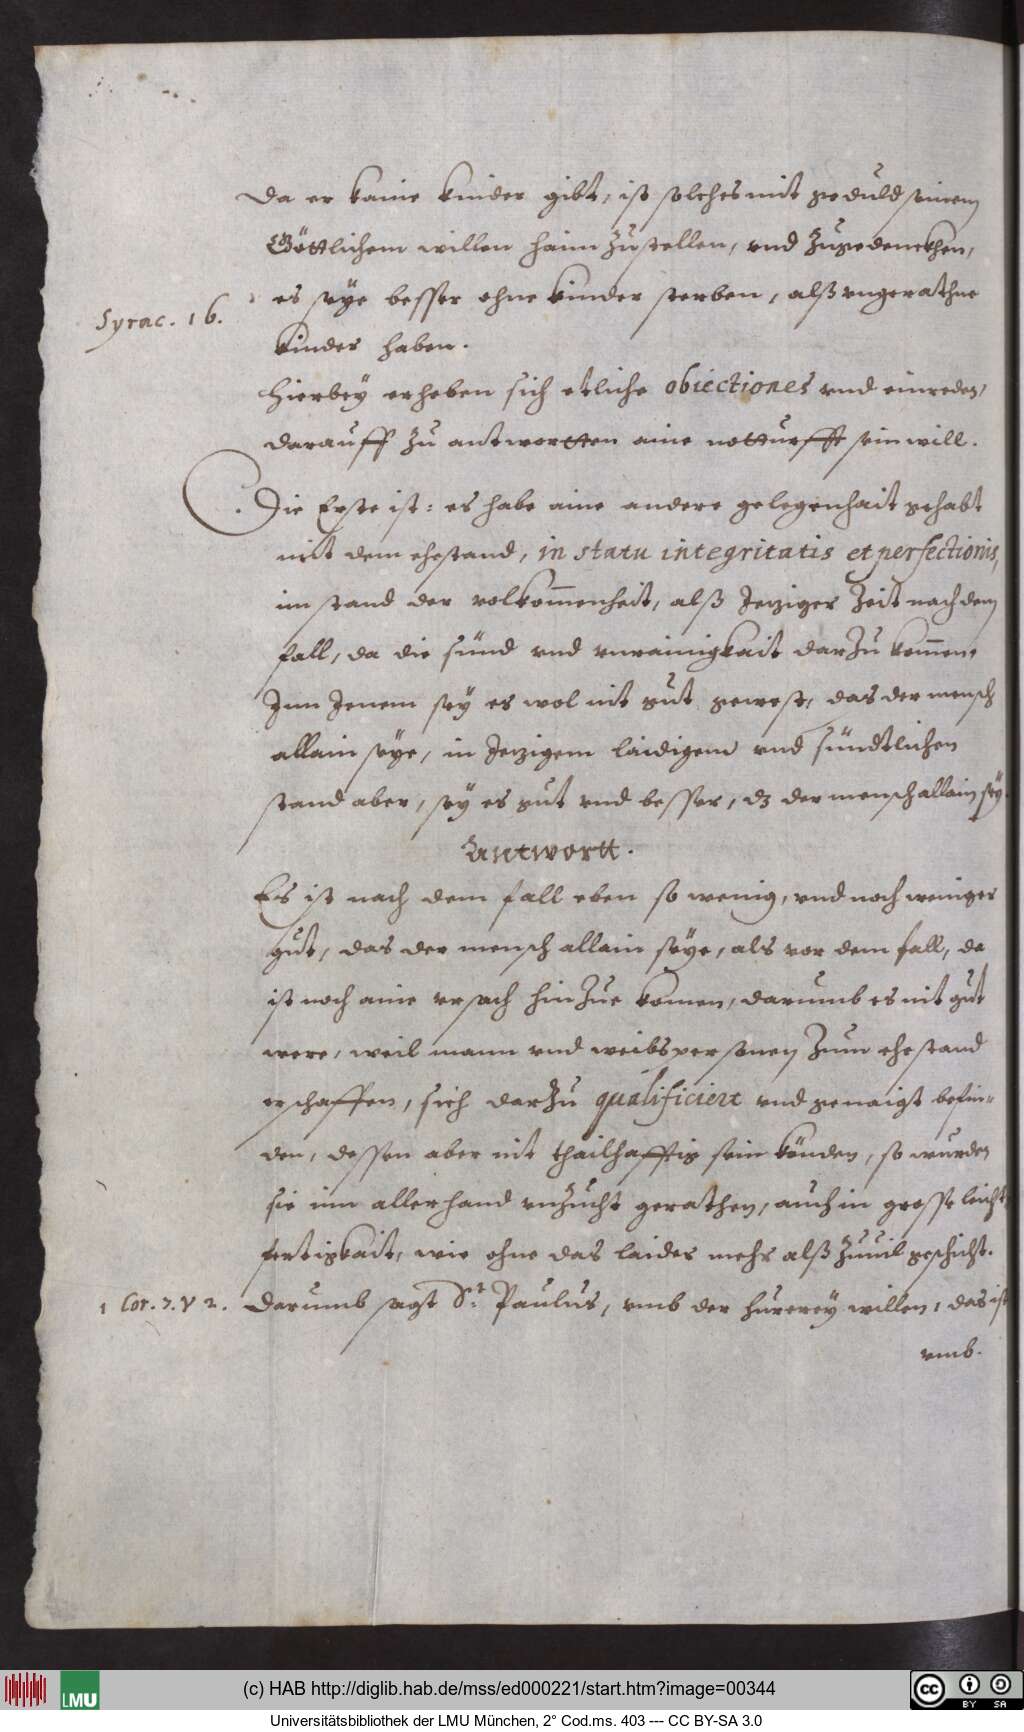 da er kaine kinder gibt, ist solches mit geduld seinem
Göttlichem willen haim zustellen, vnd zugedenckhen,
es seye besser ohne kinder sterben, alß vngerathne
Syrac. 16.
kinder haben.
Hierbey erheben sich etliche obiectiones vnd einreden,
darauff zu antwortten aine notturfft sein will.
Die Erste ist: es habe aine andere gelegenhait gehabt
mit dem ehestand, in statu integritatis et perfectionis,
im stand der volkom̅enheit, alß Jeziger Zeit nach dem
fall, da die sünd vnd vnrainigkait darzu kom̅en,
Inn Jenem sey es wol nit gut gewest, das der mensch
allain seye, in Jezigem laidigem vnd sündtlichen
stand aber, sey es gut vnd besser, dz der mensch allain sey.
Antwortt.
Es ist nach dem fall eben so wenig, vnd noch weniger
gut, das der mensch allain seye, als vor dem fall, da
ist noch aine vrsach hinzue komen, darumb es nit gut
were, weil mann vnd weibspersonen zum ehestand
erschaffen, sich darzu qualificiert vnd genaigt befin-
den, dessen aber nit thailhafftig sein könden, so wurden
sie inn allerhand vnzucht gerathen, auch in grosse leicht
fertigkait, wie ohne das laider mehr alß zuuil geschicht.
1 Cor. 7. V 2. darumb sagt St. Paulus, vmb der hurerey willen, das ist
vmb.
LMU
(c) HAB http://diglib.hab.de/mss/ed000221/start.htm?image=00344
cc BY SA
Universitätsbibliothek der LMU München, 2° Cod.ms. 403 --- CC BY-SA 3.0